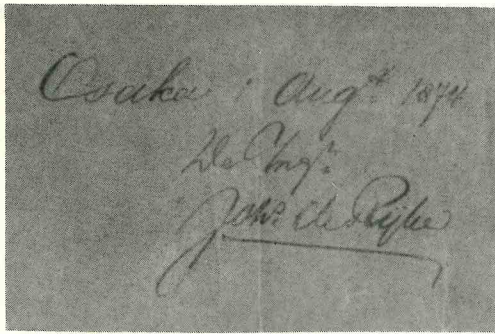 Osaka 1 Augt. 1874
De Ingr.
Johs. de Rijke